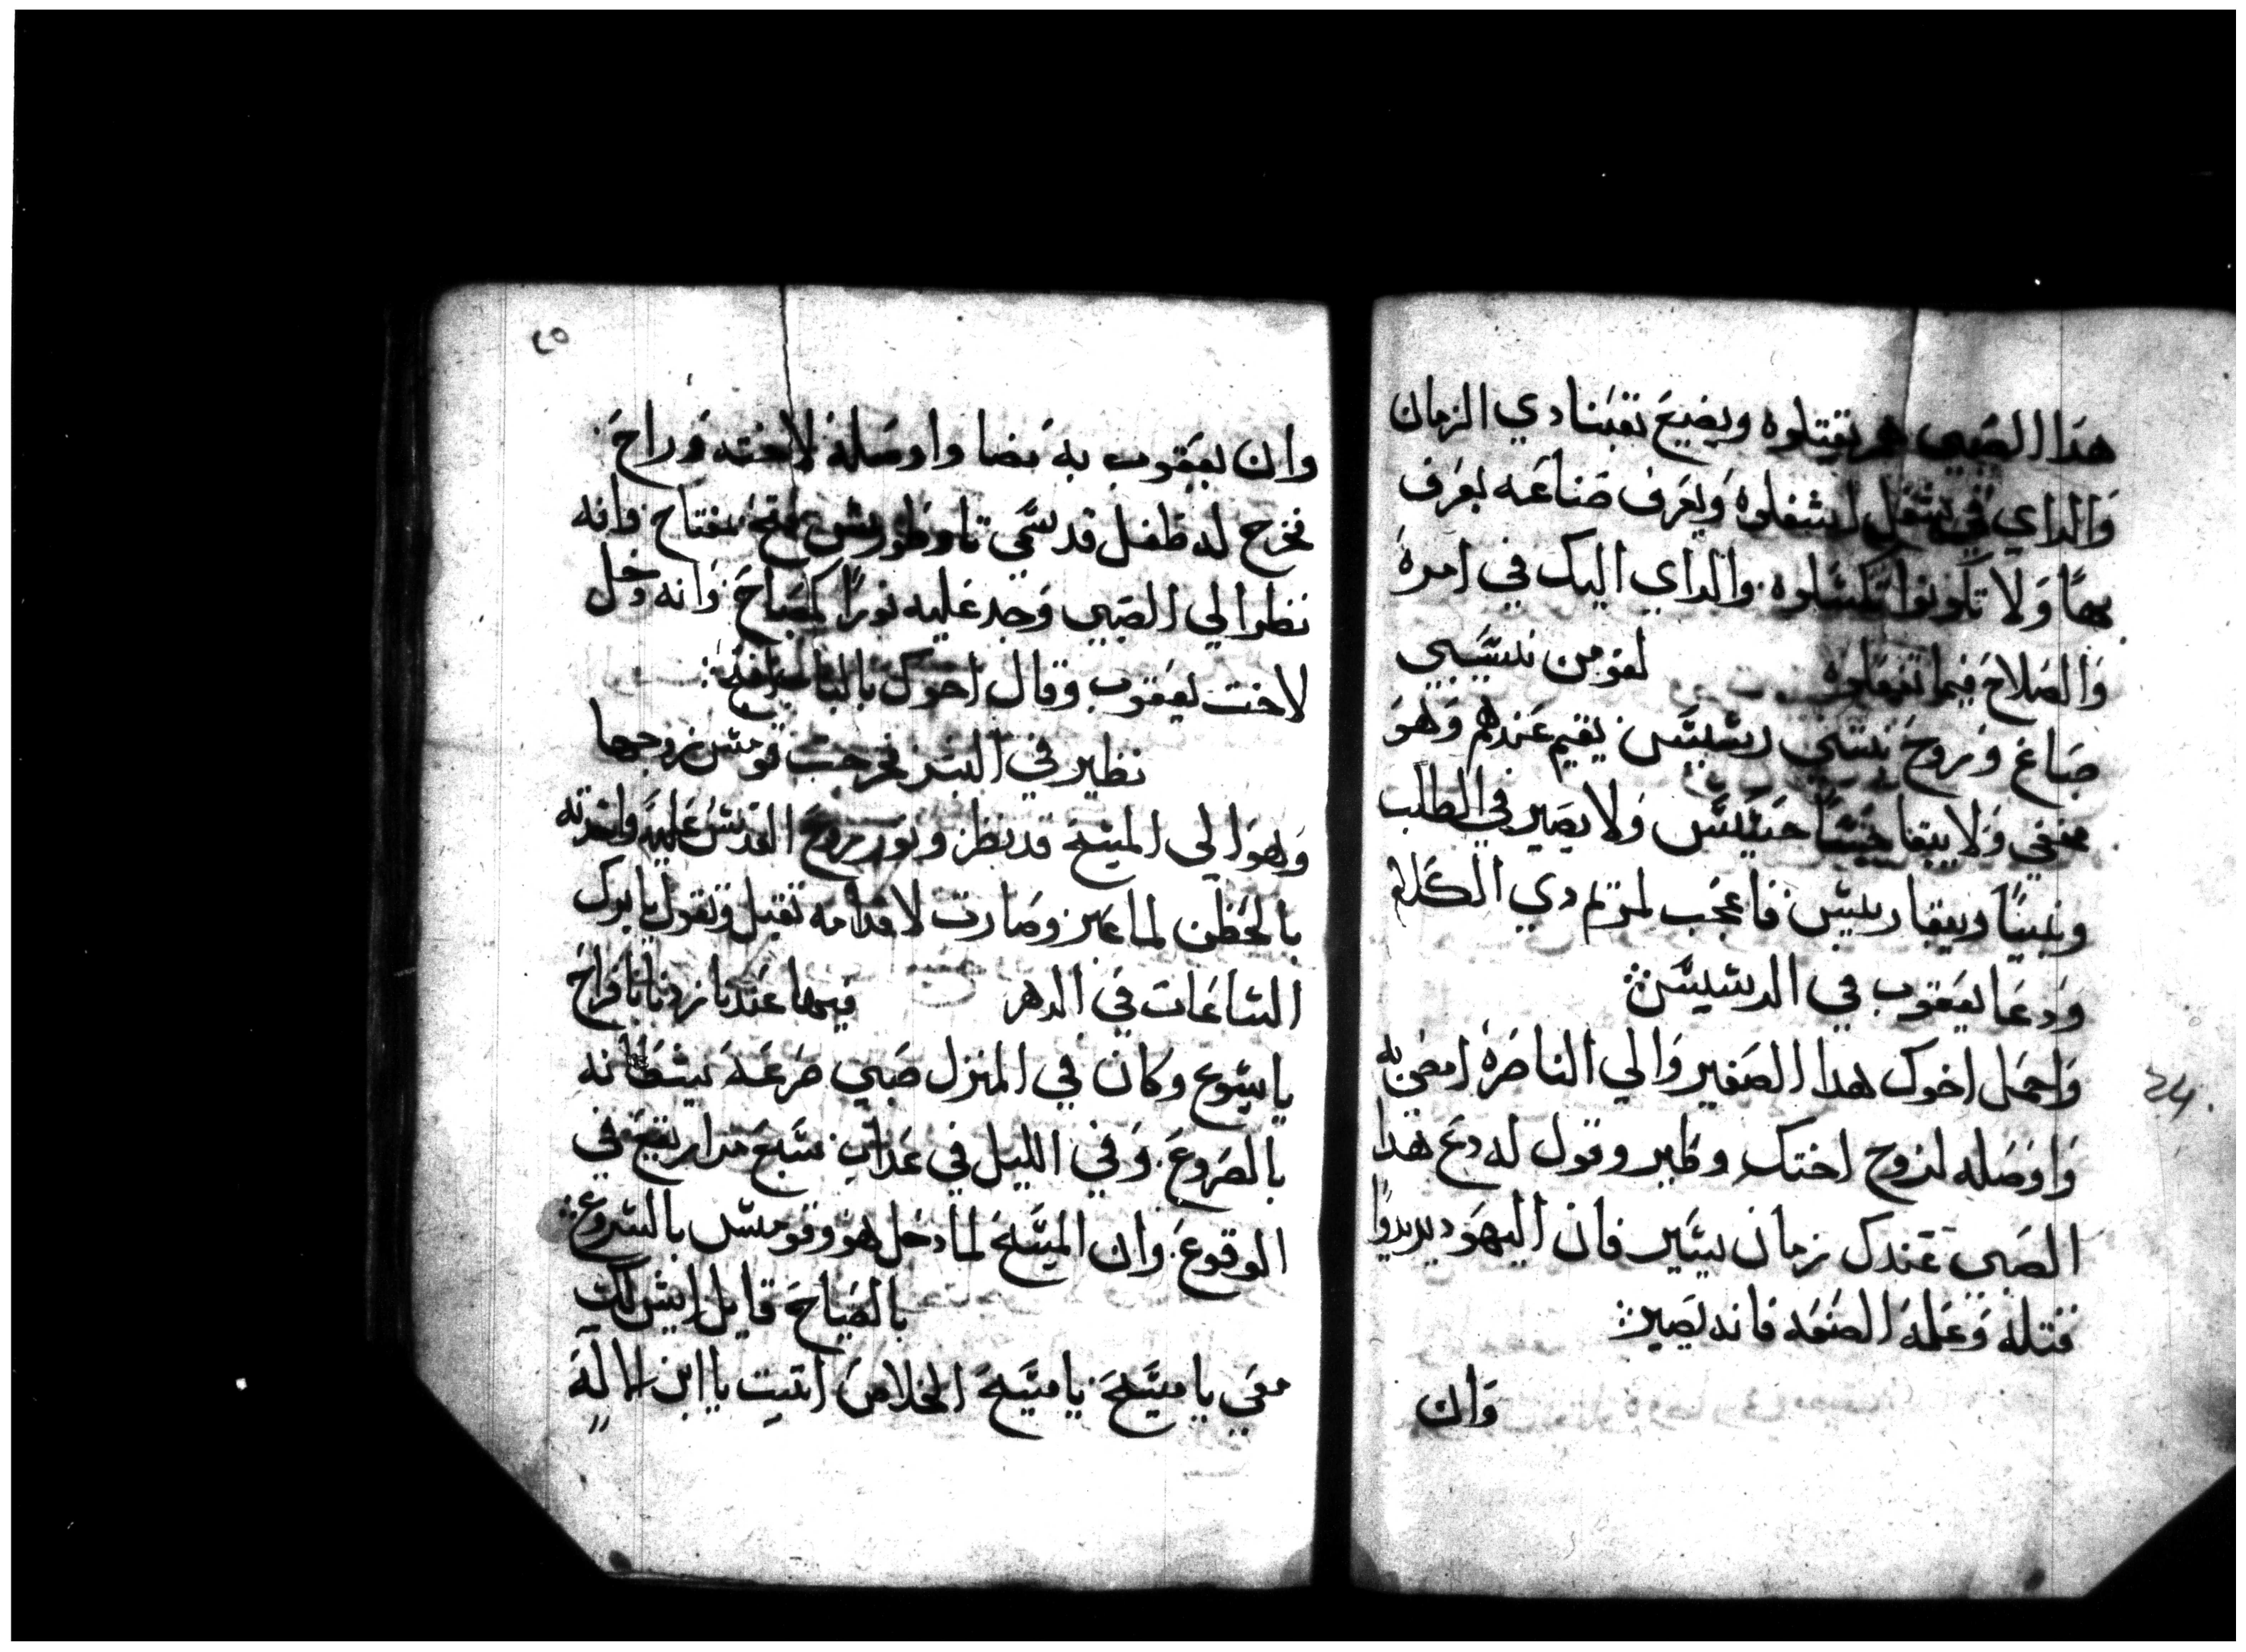 هدا الصبي هم يقتلوه ويضيع تعبنا دي الزمان
والداي في شغل اشغلوه ويعرف صناعه يعرف
بها ولا تكونوا تكسلوه والداي اليك في امره
والصلاح فيما تفعلوه لقومن نسيبي
صباغ وزوج بنتي رسيس يقيم عندهم وهو
مخفي ولا يبقا حسيس ولا يصير في الطلب
ويبقا ريس فاعجب لمريم دي الكلام
ودعا ليعقوب في الدسيس
واحمل اخوك هدا الصغير والي الناصره امضي به
واوصله لزوج اختك وقول له دع هدا
الصبي عندك زمان يسير فان اليهود يريدوا
قتله وعلمه الصنعه فانه يصير
وان
٢٥
وان يعقوب به مضا واوصله لاخته وراح
فخرج له طفل قد سمي مفتاح وانه
نظر الي الصبي وجد عليه نورا كمصباح وانه دخل
لاخت يعقوب وقال اخوك بالباب
نظير في البدر فخرجت قومس زوجها
وهو الي المسيح قد نظر ونور روح القدس عليه واخدته
بالحظن لما عبر وصارت لاقدامه تقبل وتقول يا بوك
الساعات في الدهر فيها عندنا زدنا افراح
يا يسوع وكان في المنزل صبي صرعه شيطانه
بالصروع وفي الليل في عداب سبع مرار يقع في
الوقوع وان المسيح لما دخل هو وقومس بالسروع
بالصياح قايل ايش لك
معي يا مسيح يا مسيح الخلاص اتيت يا ابن الاله